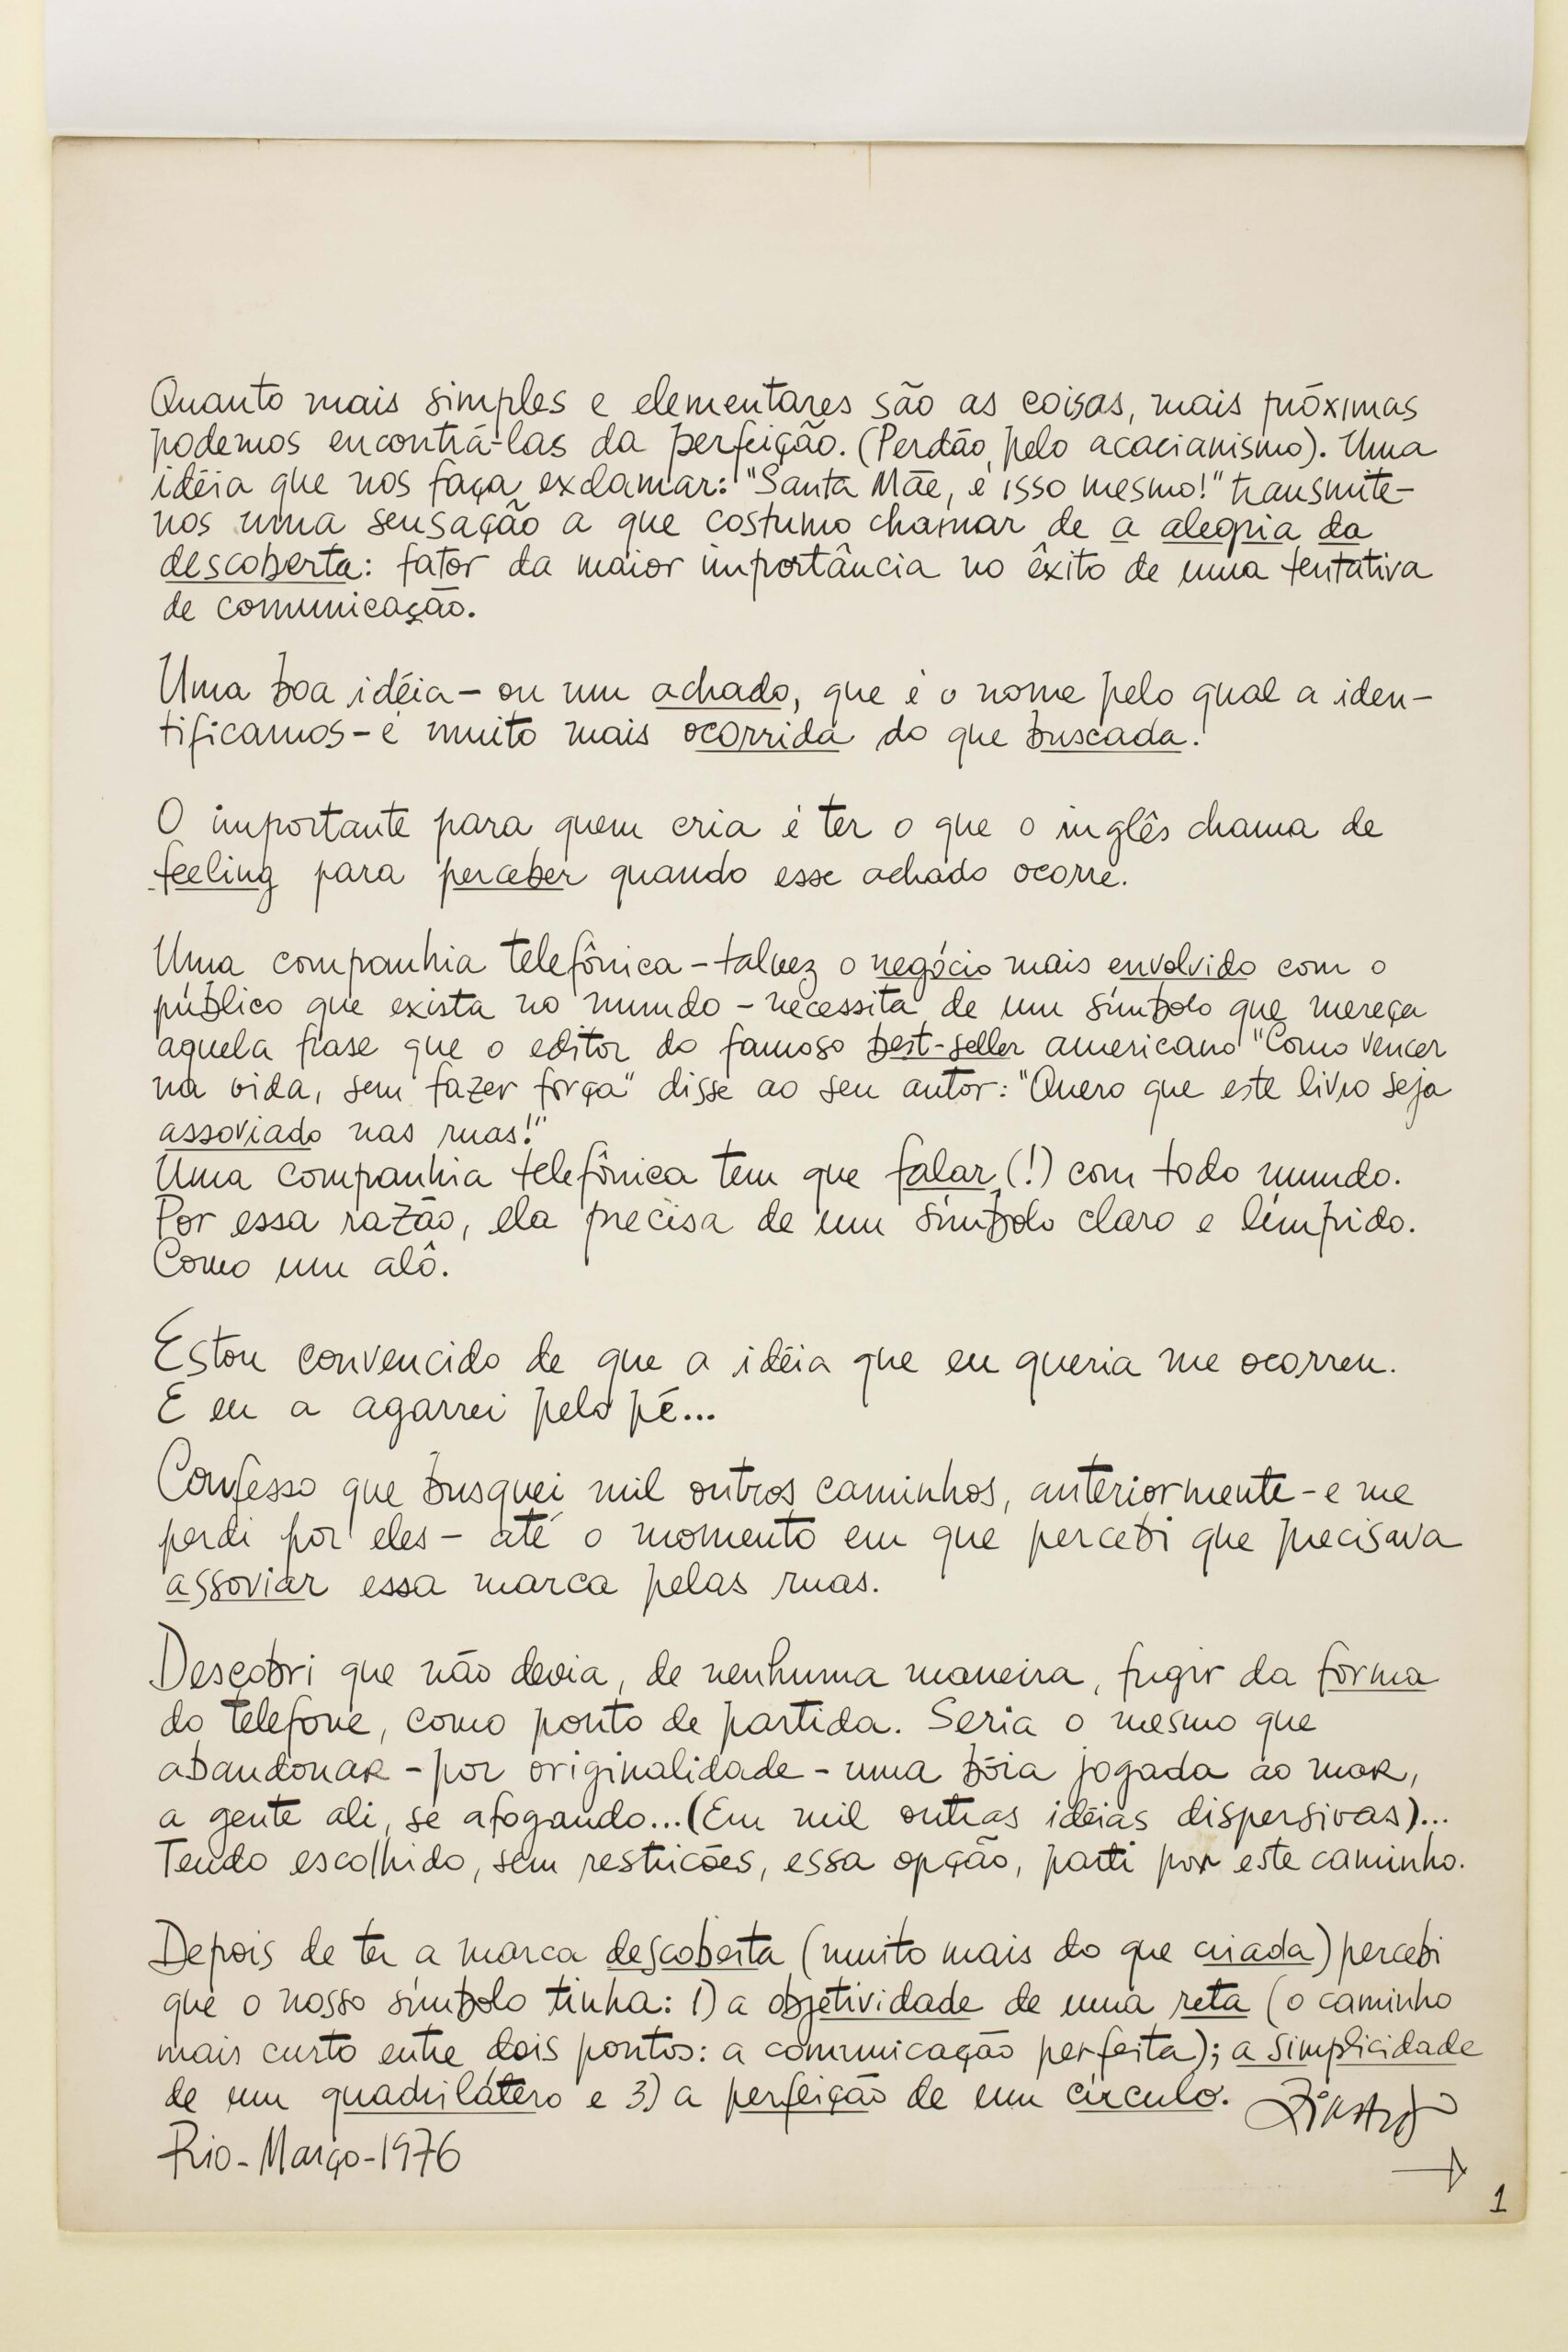 Quanto mais simples e elementares são as coisas, mais próximas
podemos encontrá-las da perfeição. (Perdão, pelo acacianismo). Uma
idéia que nos faça exclamar: "Santa Mãe, é isso mesmo!" transmite-
nos uma sensação a que costumo chamar de a alegria da
descoberta: fator da maior importância no êxito de uma tentativa
de comunicação.
Uma boa idéia - ou um achado, que é o nome pelo qual a iden-
tificamos - é muito mais ocorrida do que buscada.
O importante para quem cria é ter o que o inglês chama de
feeling para perceber quando esse achado ocorre.
Uma companhia telefônica - talvez o negócio mais envolvido com o
público que exista no mundo - necessita de um símbolo que mereça
aquela frase que o editor do famoso best-seller americano "Como vencer
na vida, sem fazer força" disse ao seu autor: "Quero que este livro seja
assoviado nas ruas!"
Uma companhia telefônica tem que falar (!) com todo mundo.
Por essa razão, ela precisa de um símbolo claro e límpido.
Como um alô.
Estou convencido de que a idéia que eu queria me ocorreu.
E eu a agarrei pelo pé...
Confesso que busquei mil outros caminhos, anteriormente - e me
perdi por eles - até o momento em que percebi que precisava
assoviar essa marca pelas ruas.
Descobri que não devia, de nenhuma maneira, fugir da forma
do telefone, como ponto de partida. Seria o mesmo que
abandonar - por originalidade - uma bóia jogada ao mar,
a gente ali, se afogando... (Em mil outras idéias dispersivas)...
Tendo escolhido, sem restricões, essa opção, parti por este caminho.
Depois de ter a marca descoberta (muito mais do que criada) percebi
que o nosso símbolo tinha: 1) a objetividade de uma reta (o caminho
mais curto entre dois pontos: a comunicação perfeita); a simplicidade
de um quadrilátero e 3) a perfeição de um círculo. Ziraldo
Rio - Março - 1976
1